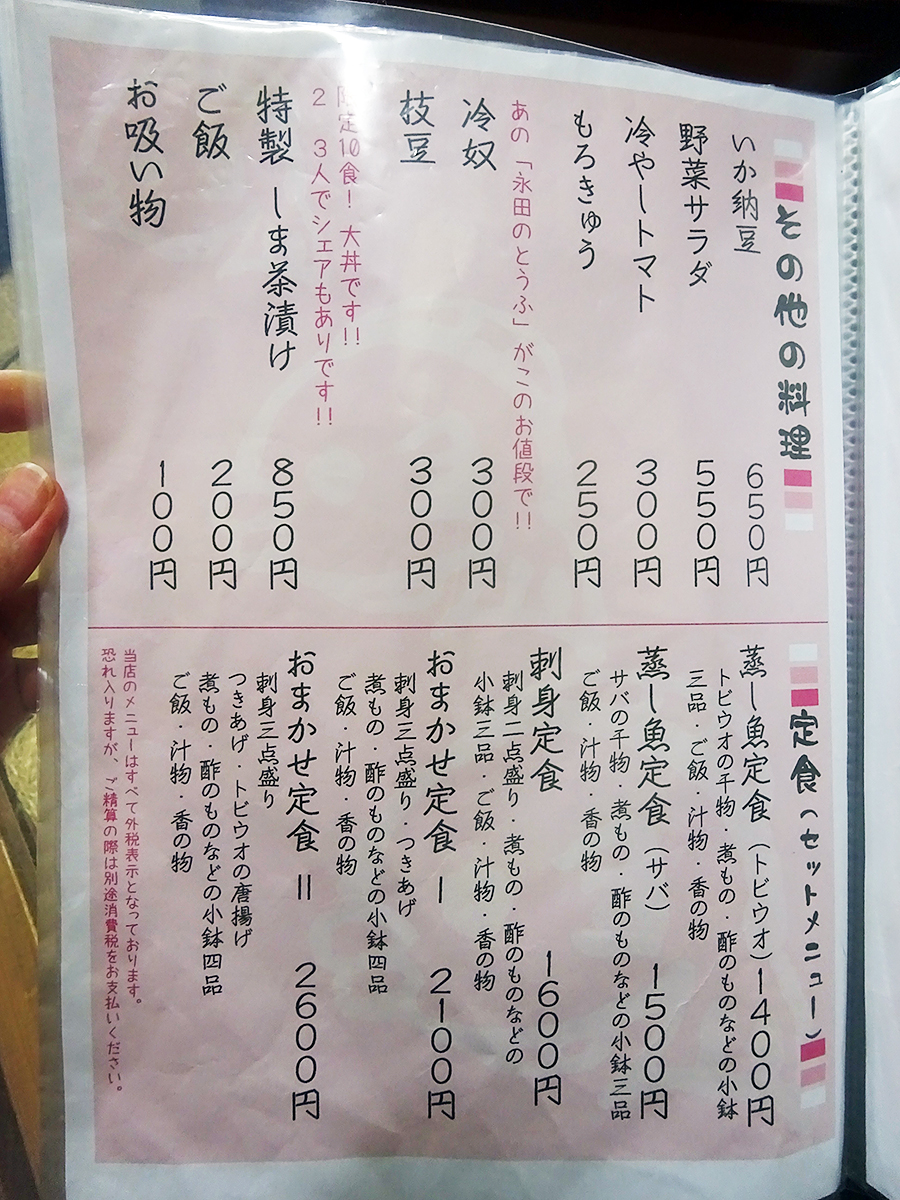 その他の料理
いか納豆 650円
野菜サラダ 550円
冷やしトマト 300円
もろきゅう 250円
あの「永田のとうふ」がこのお値段で!!
冷奴 300円
枝豆 300円
限定10食！大丼です!!
2、3人でシェアもありです!!
特製 しま茶漬け 850円
ご飯 200円
お吸い物 100円
定食(セットメニュー)
蒸し魚定食(トビウオ) 1400円
トビウオの干物・煮もの・酢のものなどの小鉢
三品・ご飯・汁物・香の物
蒸し魚定食(サバ) 1500円
サバの干物・煮もの・酢のものなどの小鉢三品
ご飯・汁物・香の物
刺身定食 1600円
刺身二点盛り・煮もの・酢のものなどの
小鉢三品・ご飯・汁物・香の物
おまかせ定食 Ⅰ 2100円
刺身三点盛り・つきあげ
煮もの・酢のものなどの小鉢四品
ご飯・汁物・香の物
おまかせ定食 Ⅱ 2600円
刺身三点盛り
つきあげ・トビウオの唐揚げ
煮もの・酢のものなどの小鉢四品
ご飯・汁物・香の物
当店のメニューはすべて外税表示となっております。
恐れ入りますが、ご精算の際は別途消費税をお支払いください。